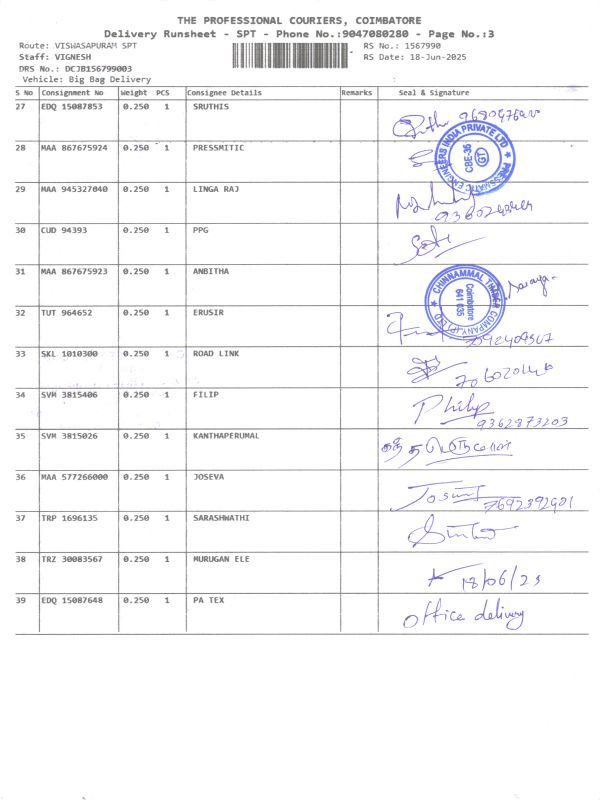 THE PROFESSIONAL COURIERS, COIMBATORE
Delivery Runsheet - SPT - Phone No.:9047080280 - Page No.:3
Route: VISWASAPURAM SPT RS No.: 1567990
Staff: VIGNESH RS Date: 18-Jun-2025
DRS No.: DCJB156799003
Vehicle: Big Bag Delivery
S No Consignment No Weight PCS Consignee Details Remarks Seal & Signature
27 EDQ 15087853 0.250 1 SRUTHIS
28 MAA 867675924 0.250 1 PRESSMITIC
PRESSMATIC ENGINEERS INDIA PRIVATE LTD
CBE-35
GT
29 MAA 945327040 0.250 1 LINGA RAJ
30 CUD 94393 0.250 1 PPG
31 MAA 867675923 0.250 1 ANBITHA
CHINNAMMAL TIMBER COMPANY (P) LTD
Coimbatore
641 035
32 TUT 964652 0.250 1 ERUSIR
7092409507
33 SKL 1010300 0.250 1 ROAD LINK
34 SVM 3815406 0.250 1 FILIP
Philip
9362873203
35 SVM 3815026 0.250 1 KANTHAPERUMAL
36 MAA 577266000 0.250 1 JOSEVA
7692392901
37 TRP 1696135 0.250 1 SARASHWATHI
38 TRZ 30083567 0.250 1 MURUGAN ELE
18/06/23
39 EDQ 15087648 0.250 1 PA TEX
office delivery